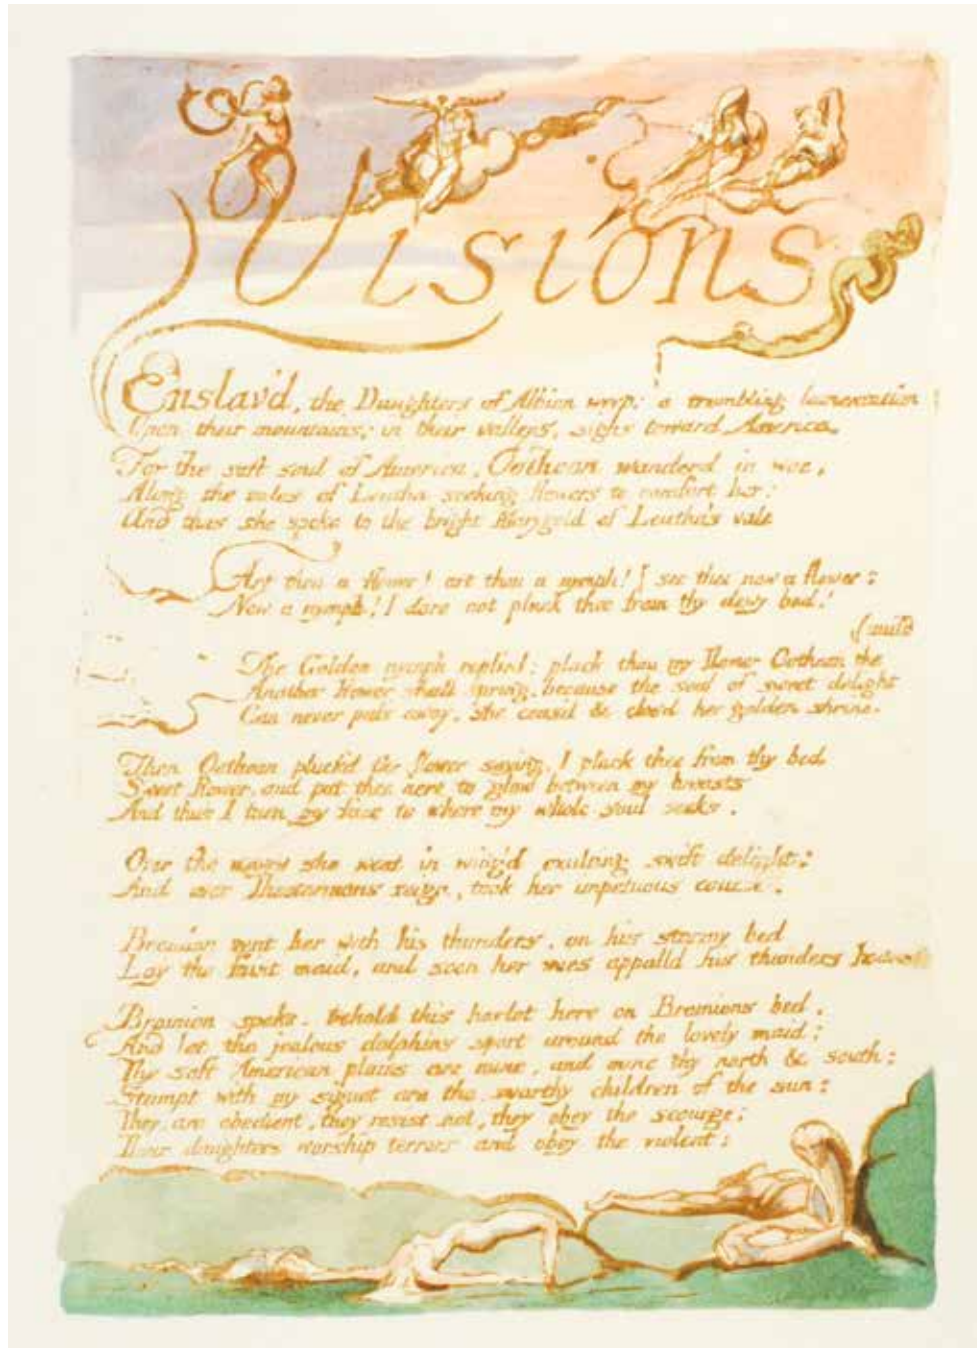 Visions
Enslav'd, the Daughters of Albion weep: a trembling lamentation
Upon their mountains; in their valleys, sighs toward America.
For the soft soul of America, Oothoon wanderd in woe,
Along the vales of Leutha seeking flowers to comfort her;
And thus she spoke to the bright Marygold of Leutha's vale
Art thou a flower! art thou a nymph! I see thee now a flower;
Now a nymph! I dare not pluck thee from thy dewy bed!
(mild
The Golden nymph replied; pluck thou my flower Oothoon the
Another flower shall spring, because the soul of sweet delight
Can never pass away. she ceas'd & closd her golden shrine.
Then Oothoon pluck'd the flower saying, I pluck thee from thy bed
Sweet flower, and put thee here to glow between my breasts
And thus I turn my face to where my whole soul seeks.
Over the waves she went in wing'd exulting swift delight;
And over Theotormons reign, took her impetuous course.
Bromion rent her with his thunders, on his stormy bed
Lay the faint maid, and soon her woes appalld his thunders hoarse
Bromion spoke. behold this harlot here on Bromions bed,
And let the jealous dolphins sport around the lovely maid;
Thy soft American plains are mine, and mine thy north & south:
Stampt with my signet are the swarthy children of the sun:
They are obedient, they resist not, they obey the scourge:
Their daughters worship terrors and obey the violent: